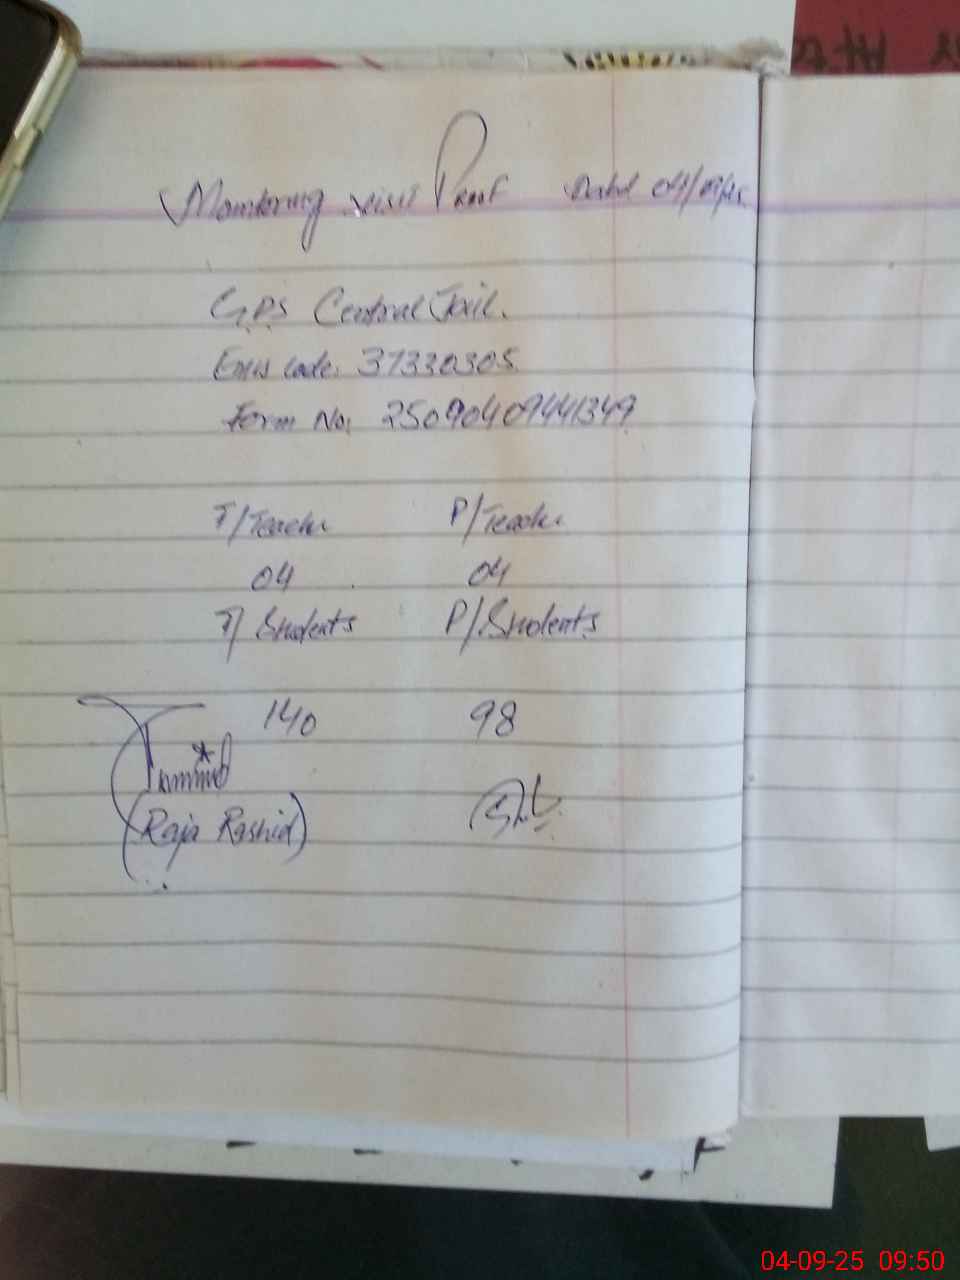 Monitoring visit Proof Dated 04/09/25
G.P.S Central Jail.
Emis code: 37330305
Form No: 25090409441349
T/Teacher P/Teacher
04 04
T/Students P/Students
140 98
(Raja Rashid)
04-09-25 09:50